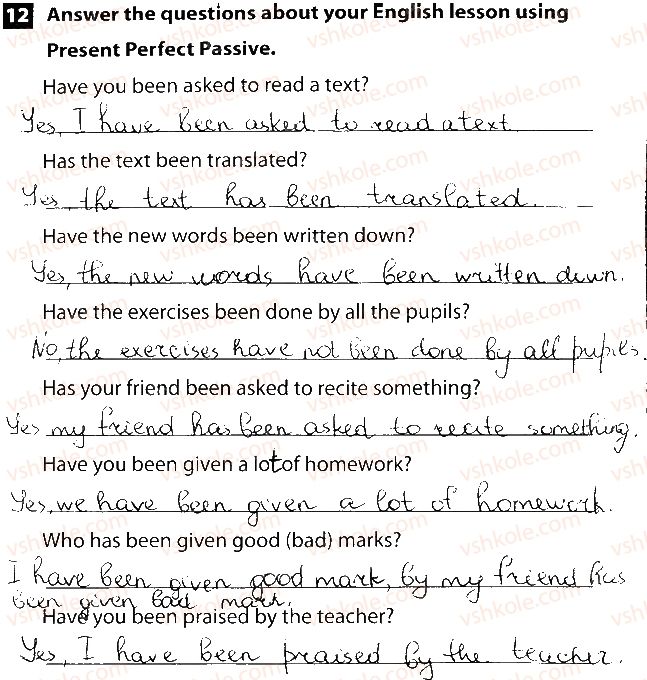 12 Answer the questions about your English lesson using
Present Perfect Passive.
Have you been asked to read a text?
Yes, I have been asked to read a text
Has the text been translated?
Yes the text has been translated.
Have the new words been written down?
Yes, the new words have been written down.
Have the exercises been done by all the pupils?
No, the exercises have not been done by all pupils.
Has your friend been asked to recite something?
Yes my friend has been asked to recite something.
Have you been given a lot of homework?
Yes, we have been given a lot of homework.
Who has been given good (bad) marks?
I have been given good mark, by my friend has
been given bad mark.
Have you been praised by the teacher?
Yes, I have been praised by the teacher.
vshkole.com